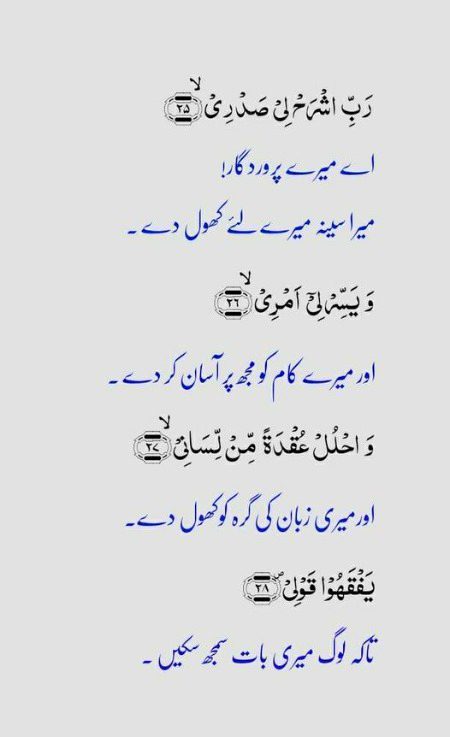 رَبِّ اشْرَحْ لِيْ صَدْرِيْ ۙ﴿۲۵﴾
اے میرے پروردگار!
میرا سینہ میرے لئے کھول دے ۔
وَ يَسِّرْ لِيْٓ اَمْرِيْ ۙ﴿۲۶﴾
اور میرے کام کو مجھ پر آسان کر دے ۔
وَ احْلُلْ عُقْدَةً مِّنْ لِّسَانِيْ ۙ﴿۲۷﴾
اور میری زبان کی گرہ کو کھول دے ۔
يَفْقَهُوْا قَوْلِيْ ۪﴿۲۸﴾
تاکہ لوگ میری بات سمجھ سکیں ۔